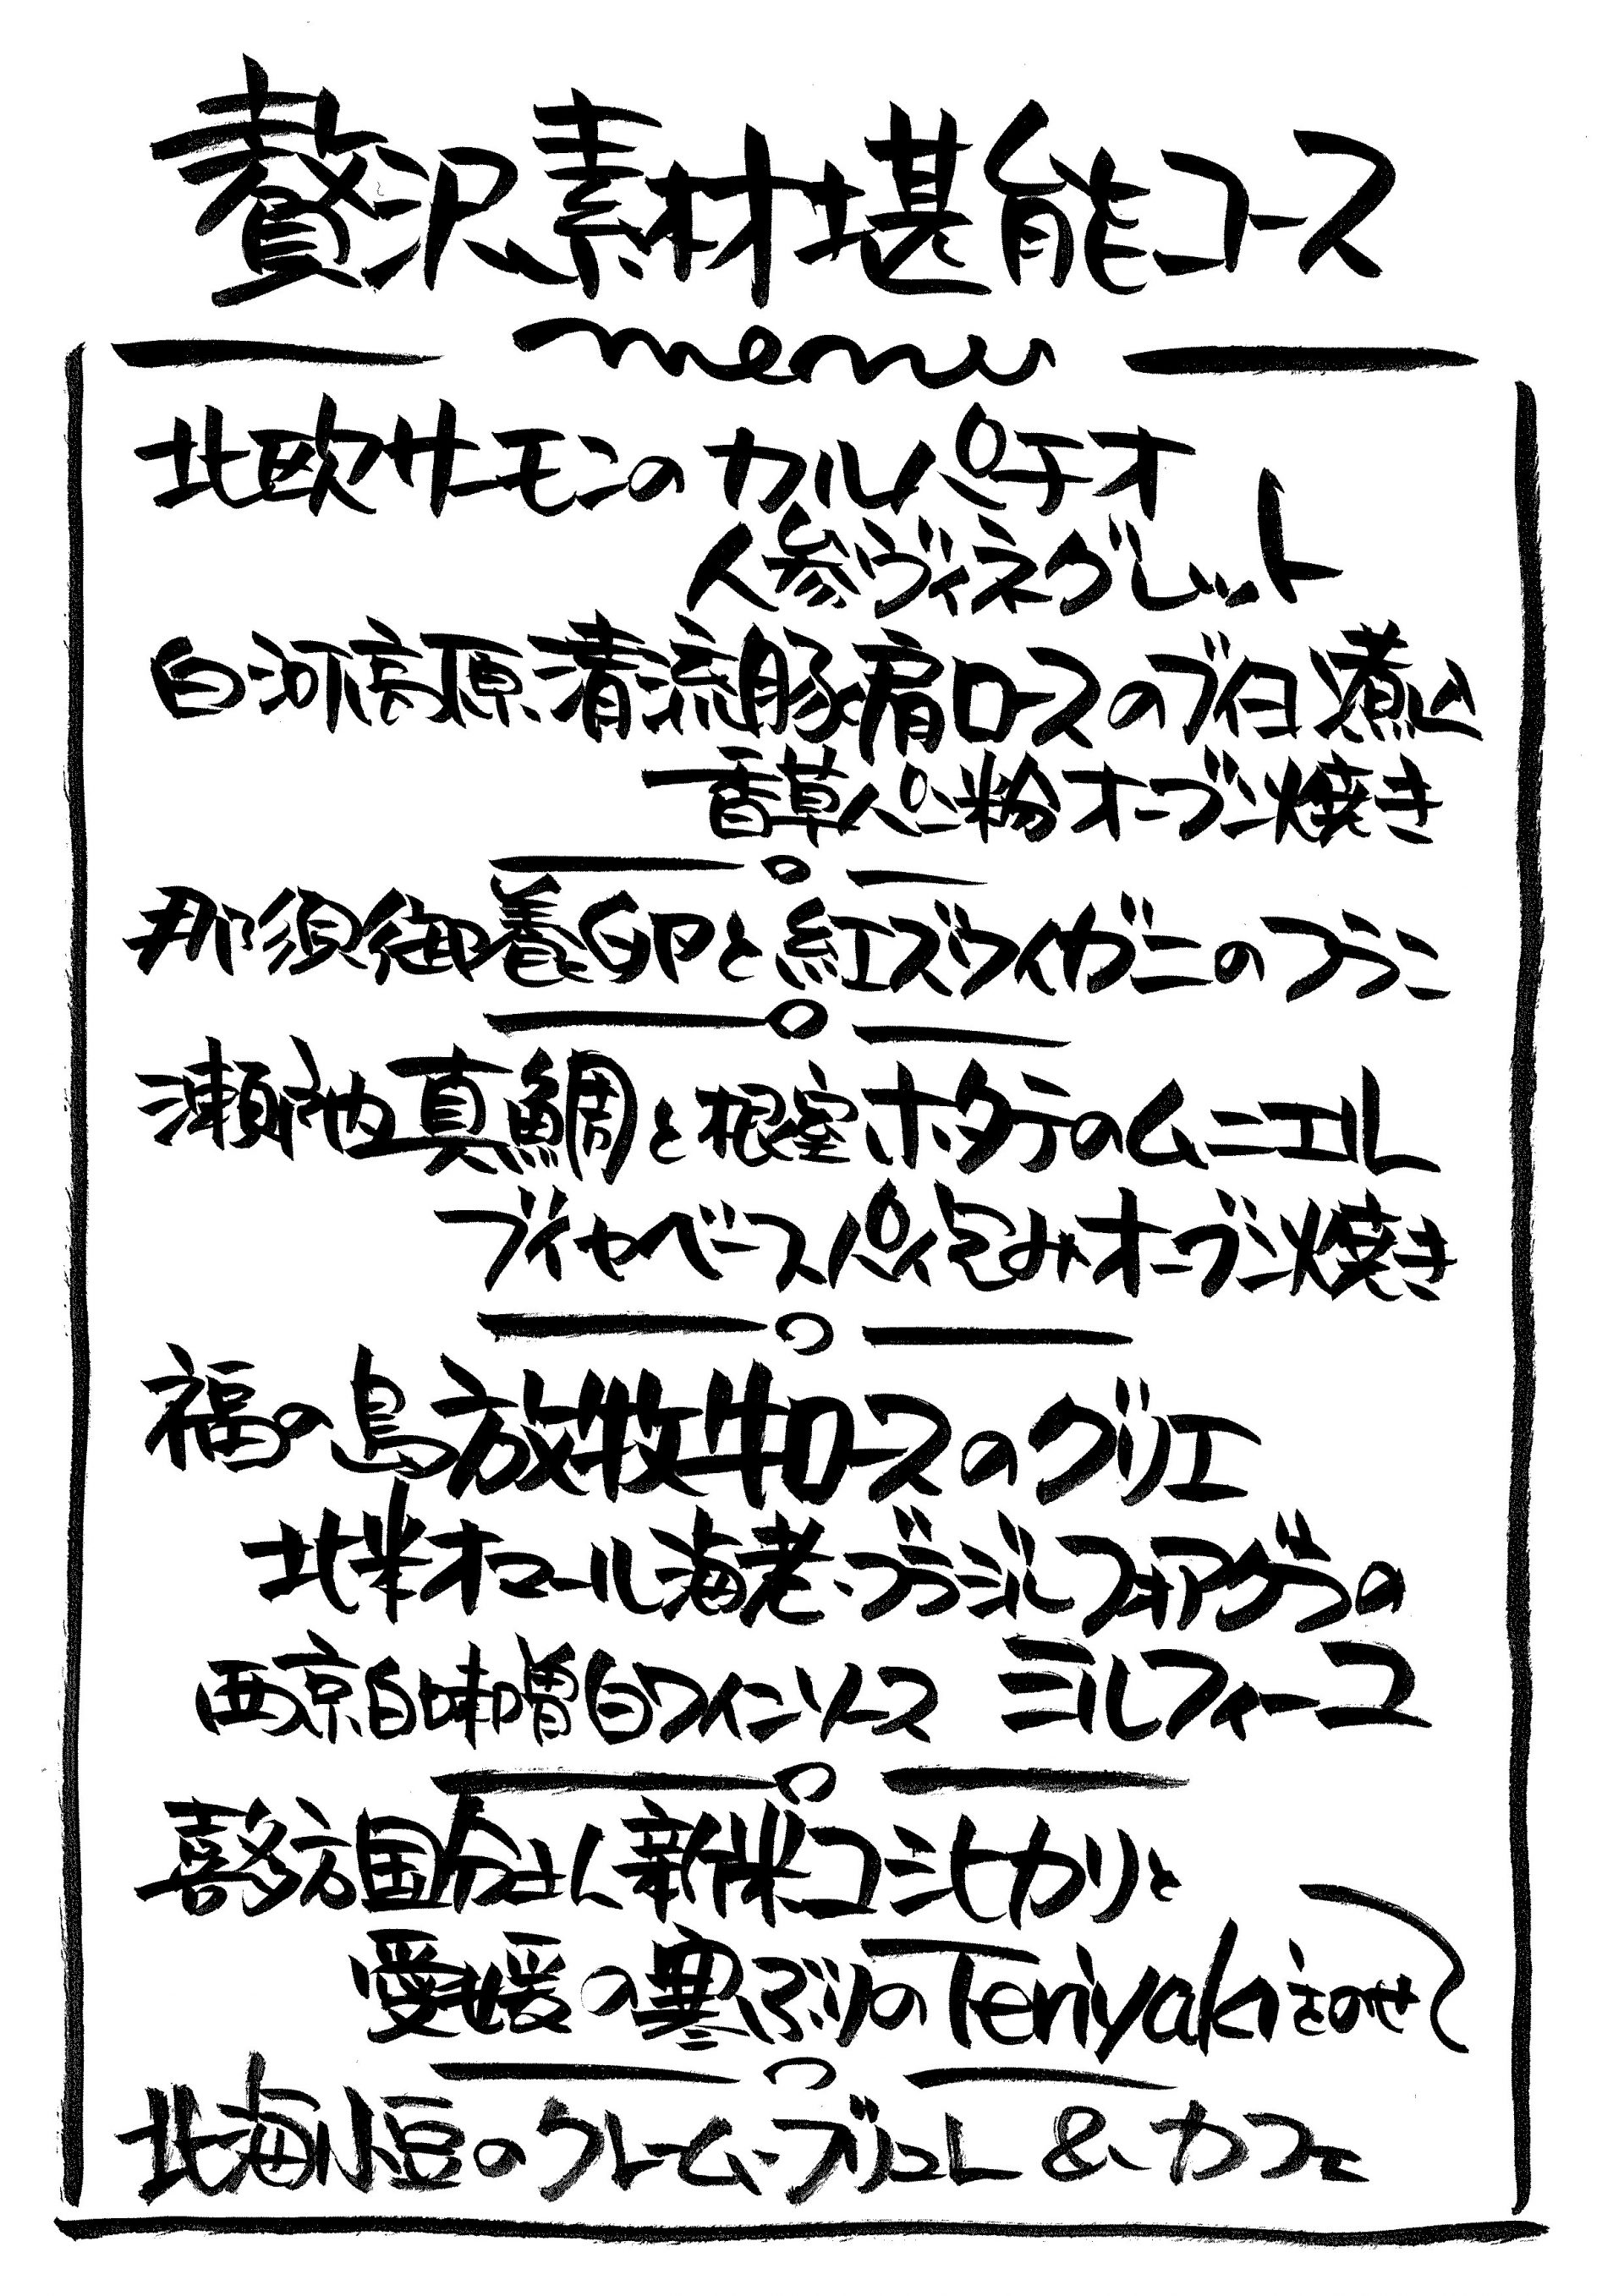 贅沢素材堪能コース
menu
北欧サーモンのカルパチオ
人参ヴィネグレット
白河高原清流豚肩ロースのブイヨン煮込
香草パン粉オーブン焼き
那須御養卵と紅ズワイガニのフラン
瀬戸内真鯛と根室ホタテのムニエル
ブイヤベースパイ包みオーブン焼き
福の島放牧牛ロースのグリエ
北米オマール海老・ブラジルフォアグラの
西京白味噌白ワインソース ミルフィーユ
喜多方国分さん新米コシヒカリと
愛媛の寒ぶりのTeriyakiをのせて
北海小豆のクレームブリュレ & カフェ